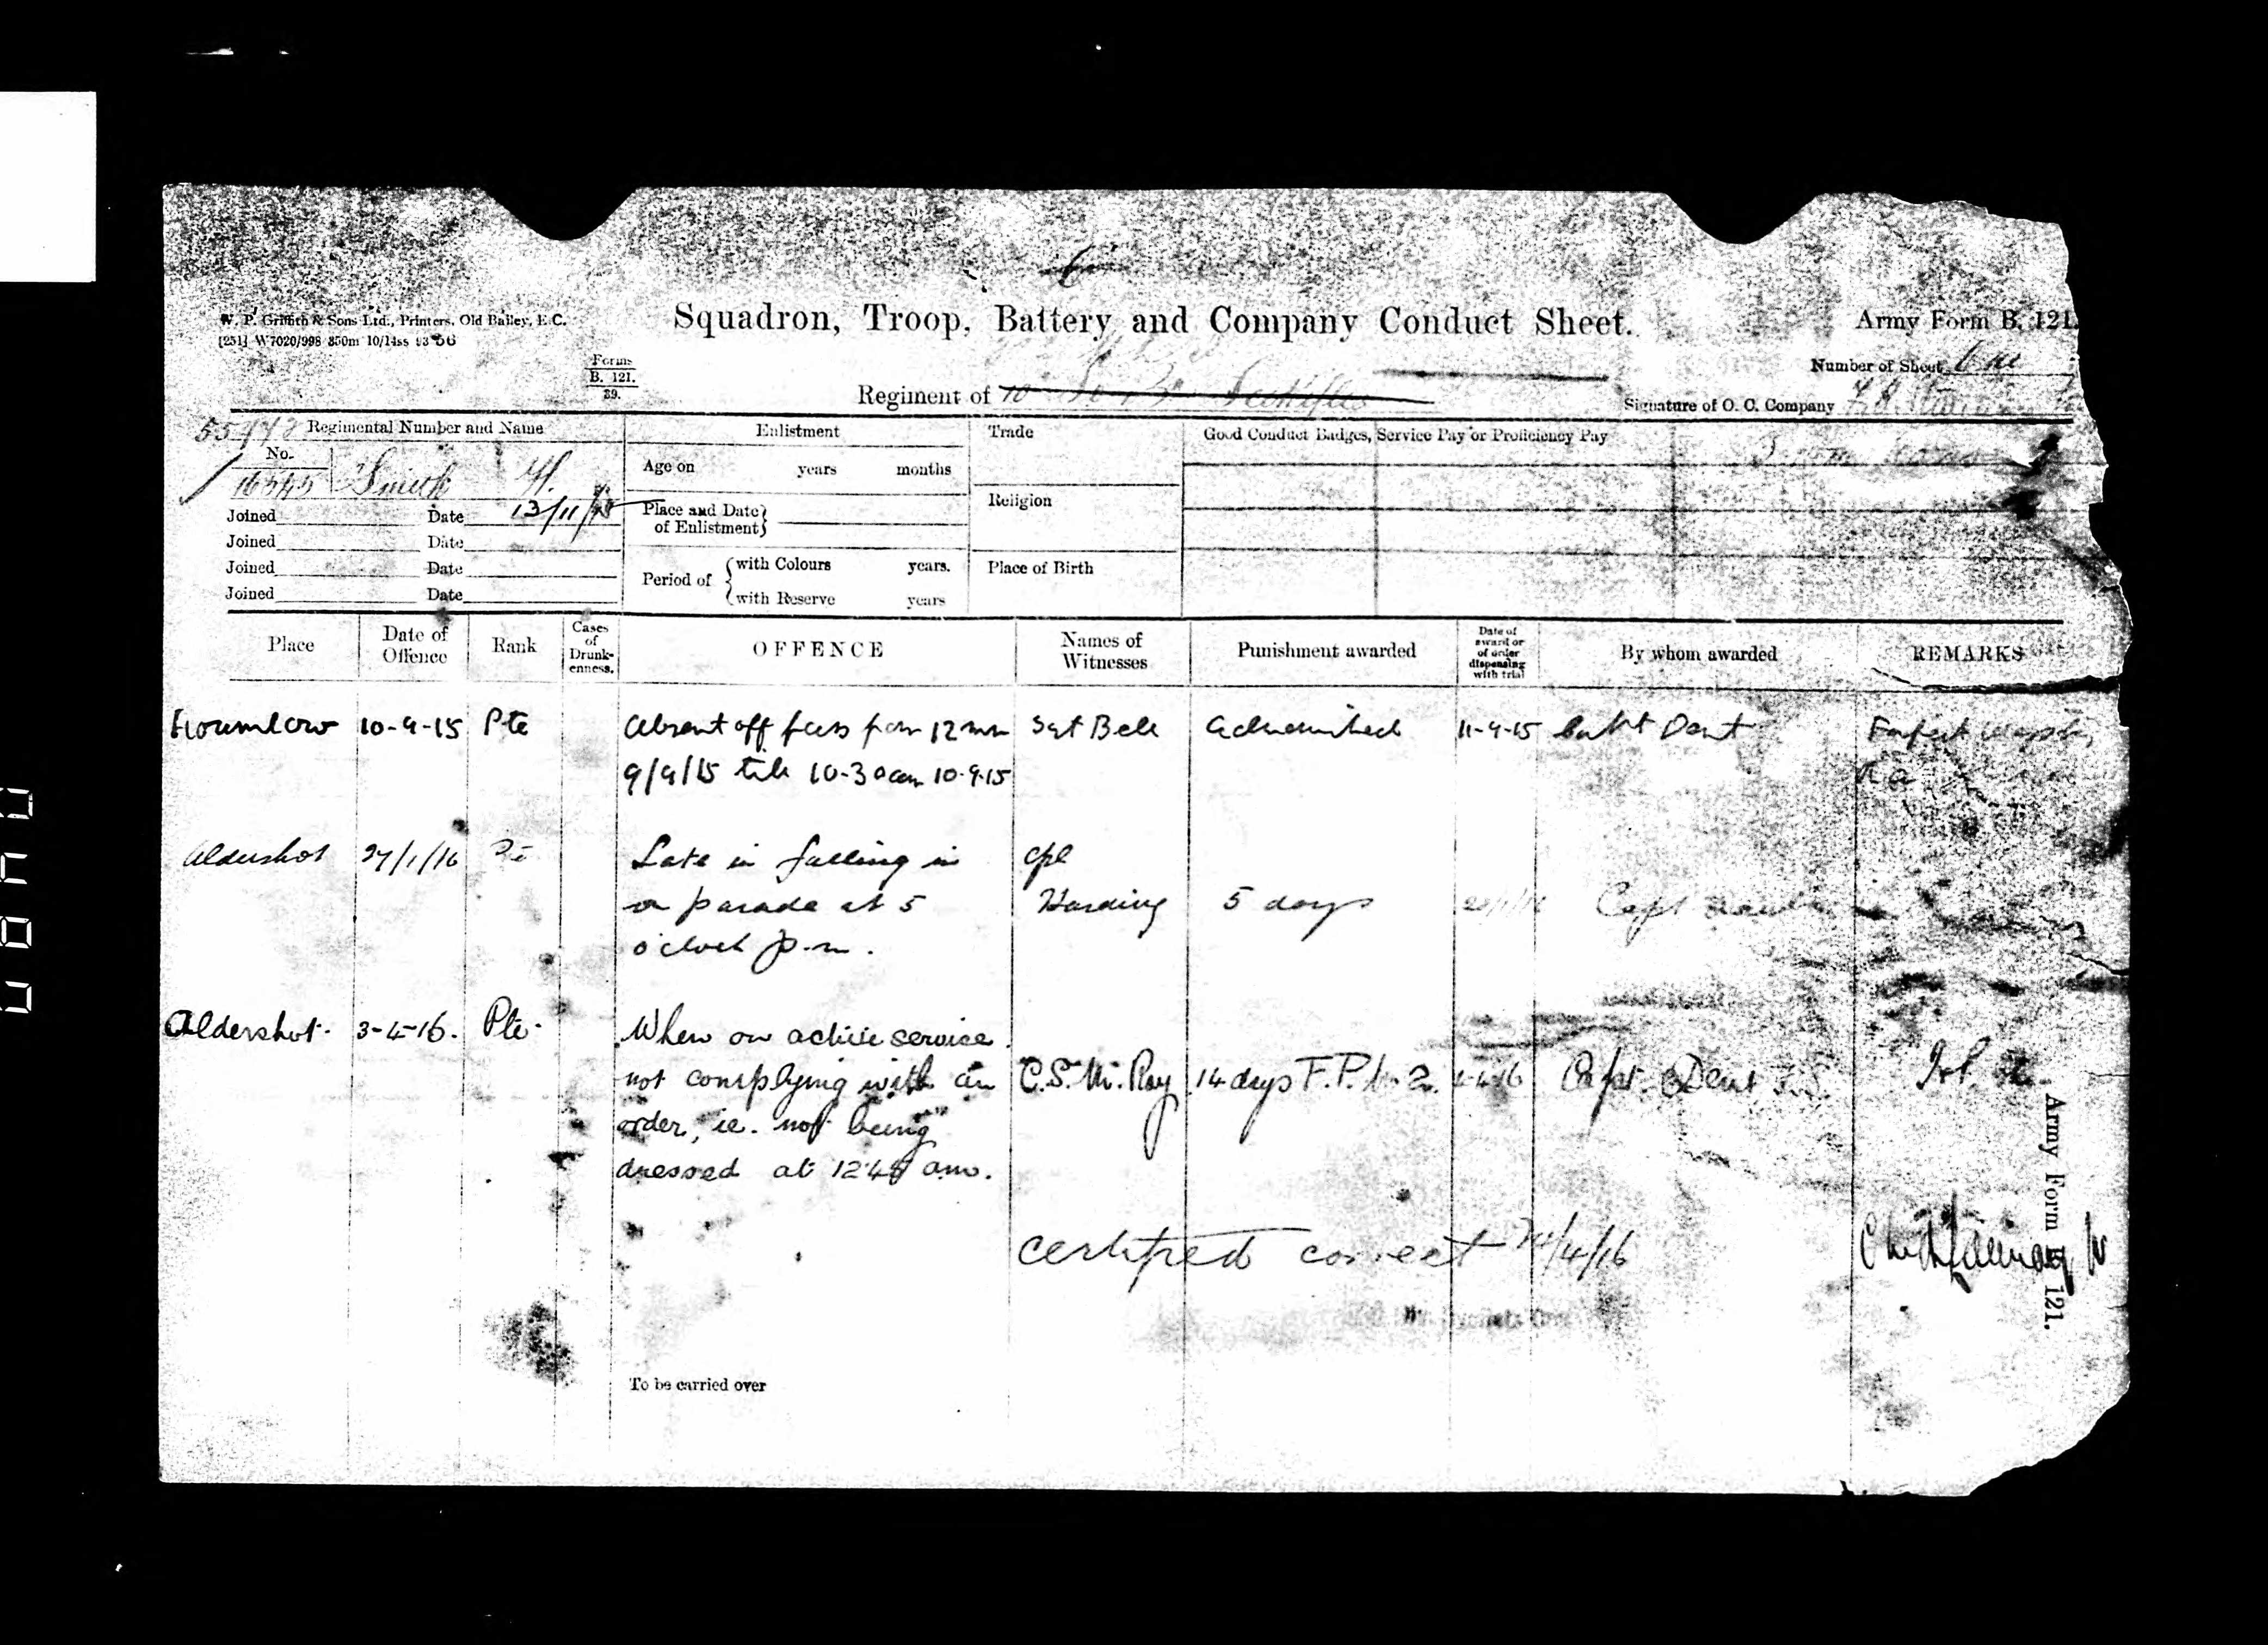 W. P. Griffith & Sons Ltd., Printers, Old Bailey, E.C.
Squadron, Troop, Battery and Company Conduct Sheet.
Army Form B. 121.
[251] W7020/998 350m 10/14ss
Forms
B. 121.
39.
Number of Sheet
Regiment of
Signature of O. C. Company
Regimental Number and Name
Enlistment
Trade
Good Conduct Badges, Service Pay or Proficiency Pay
No.
16545 Smith
Age on years months
Joined Date 13/11/
Place and Date of Enlistment
Religion
Joined Date
Joined Date
Period of with Colours years.
Place of Birth
Joined Date
with Reserve years
Place
Date of Offence
Rank
Cases of Drunkenness.
OFFENCE
Names of Witnesses
Punishment awarded
Date of award or of order dispensing with trial
By whom awarded
REMARKS
Hounslow 10-9-15 Pte Absent off pass from 12 mn Sgt Bell admonished 11-9-15 Capt Dent Forfeit
9/9/15 till 10-30 am 10-9-15
Aldershot 27/1/16 Pte Late in falling in Cpl
on parade at 5 Harding 5 days Capt
o'clock p.m.
Aldershot. 3-4-16. Pte. When on active service
not complying with an C.S.M. Roy. 14 days F.P. No 2. 4-4-16 Capt. Dent
order, ie. not being
dressed at 12.45 am.
certified correct /4/16
To be carried over
Army Form B. 121.